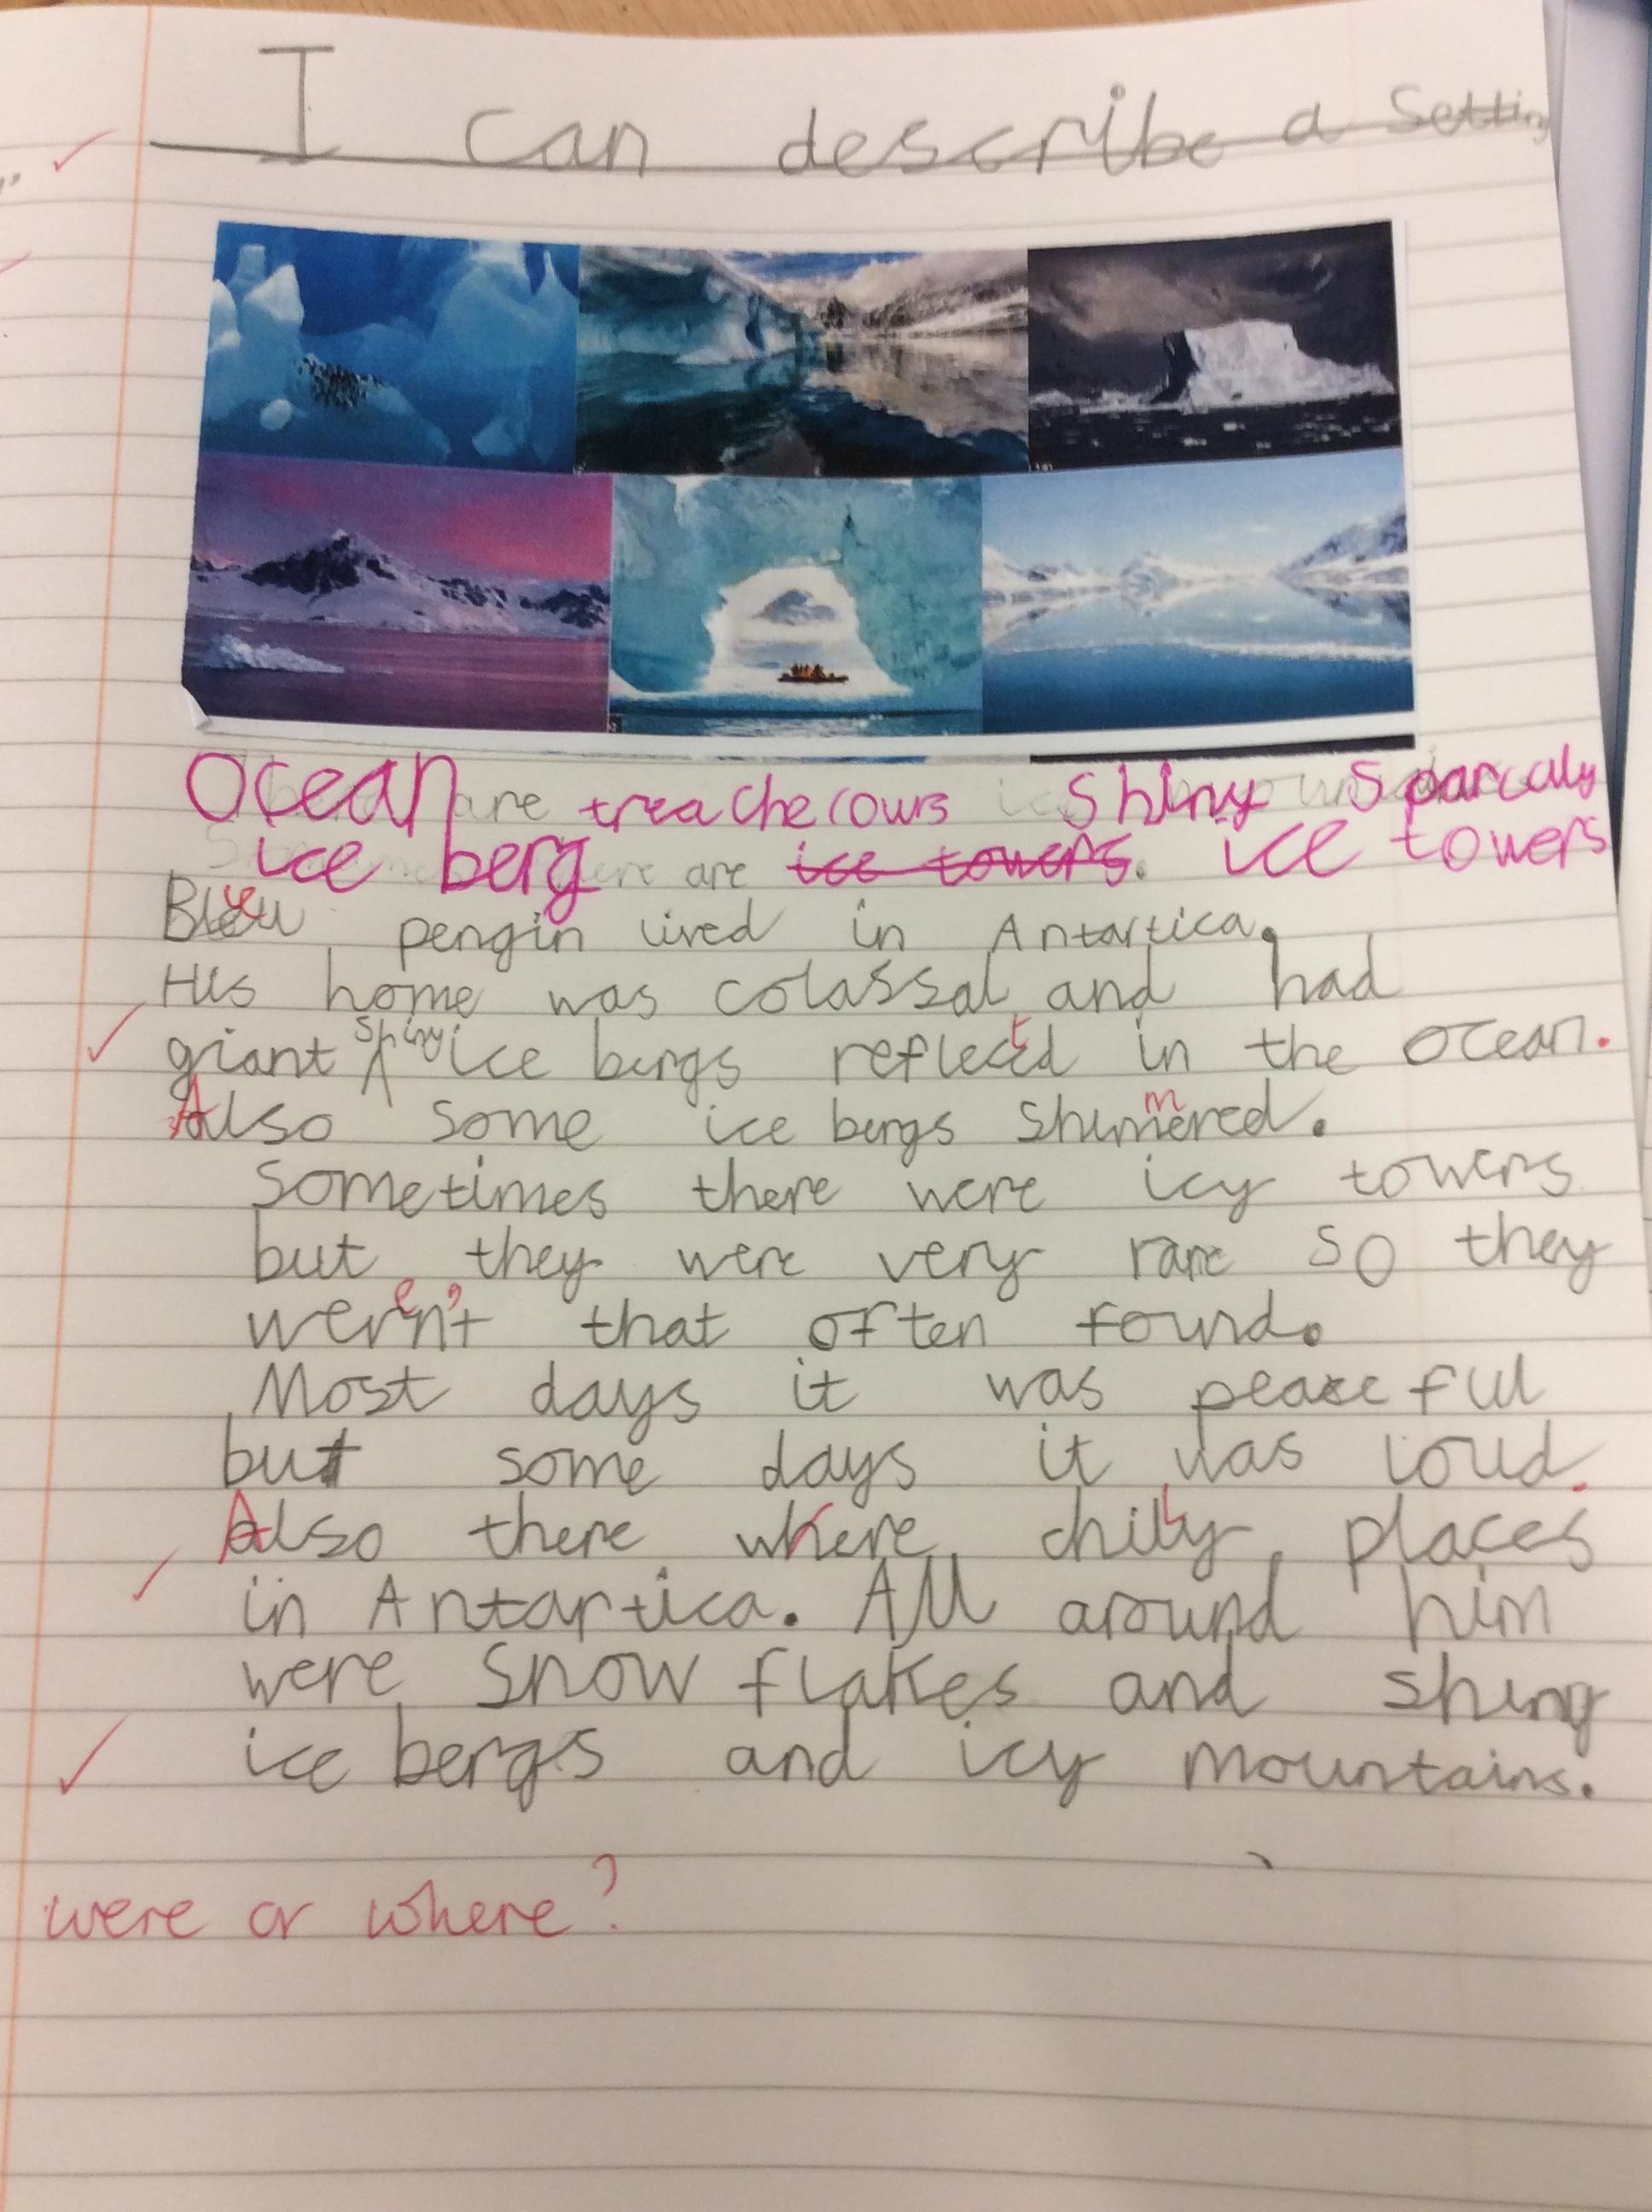 I can describe a Setting
Ocean are treacherous shiny sparcaly
ice berg are ice towers. ice towers
Bleu pengin lived in Antartica.
His home was colassal and had
giant shiny ice bergs reflectd in the ocean.
Also some ice bergs shimmered.
Sometimes there were icy towers
but they were very rare so they
weren't that often found.
Most days it was peaceful
but some days it was loud.
Also there where chilly places
in Antartica. All around him
were snow flakes and shiny
ice bergs and icy mountains.
were or where?